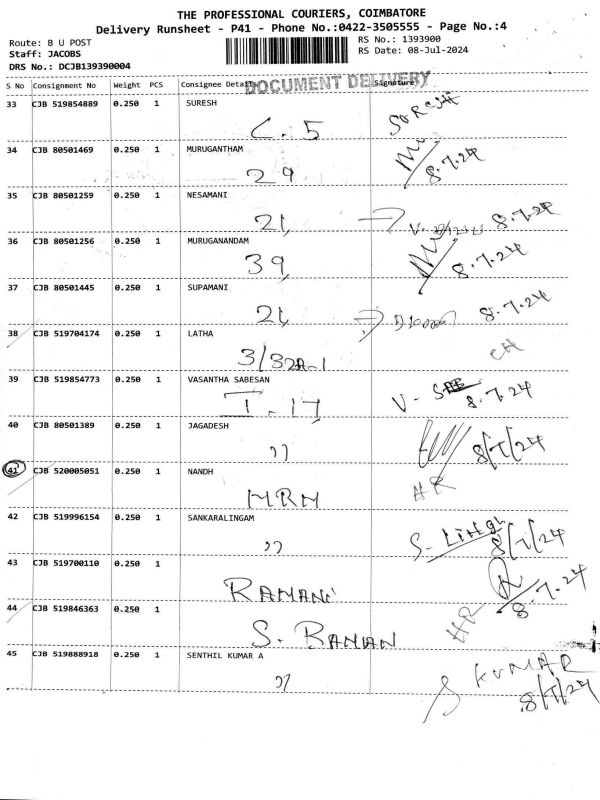 THE PROFESSIONAL COURIERS, COIMBATORE
Delivery Runsheet - P41 - Phone No.:0422-3505555 - Page No.:4
Route: B U POST RS No.: 1393900
Staff: JACOBS RS Date: 08-Jul-2024
DRS No.: DCJB139390004
DOCUMENT DELIVERY
S No Consignment No Weight PCS Consignee Details Signature
33 CJB 519854889 0.250 1 SURESH
C. 5 SURESH
34 CJB 80501469 0.250 1 MURUGANTHAM
29 8.7.24
35 CJB 80501259 0.250 1 NESAMANI
21, 8.7.24
36 CJB 80501256 0.250 1 MURUGANANDAM
39, 8.7.24
37 CJB 80501445 0.250 1 SUPAMANI
21, 8.7.24
38 CJB 519704174 0.250 1 LATHA
3/32A-1 CH
39 CJB 519854773 0.250 1 VASANTHA SABESAN
I. 17 8.7.24
40 CJB 80501389 0.250 1 JAGADESH
,, 8/7/24
41 CJB 520005051 0.250 1 NANDH
MRM HR
42 CJB 519996154 0.250 1 SANKARALINGAM
,, S. 8/7/24
43 CJB 519700110 0.250 1
RAMANI 8.7.24
44 CJB 519846363 0.250 1
S. RAMAN HR
45 CJB 519888918 0.250 1 SENTHIL KUMAR A
,, S KUMAR
8/7/24